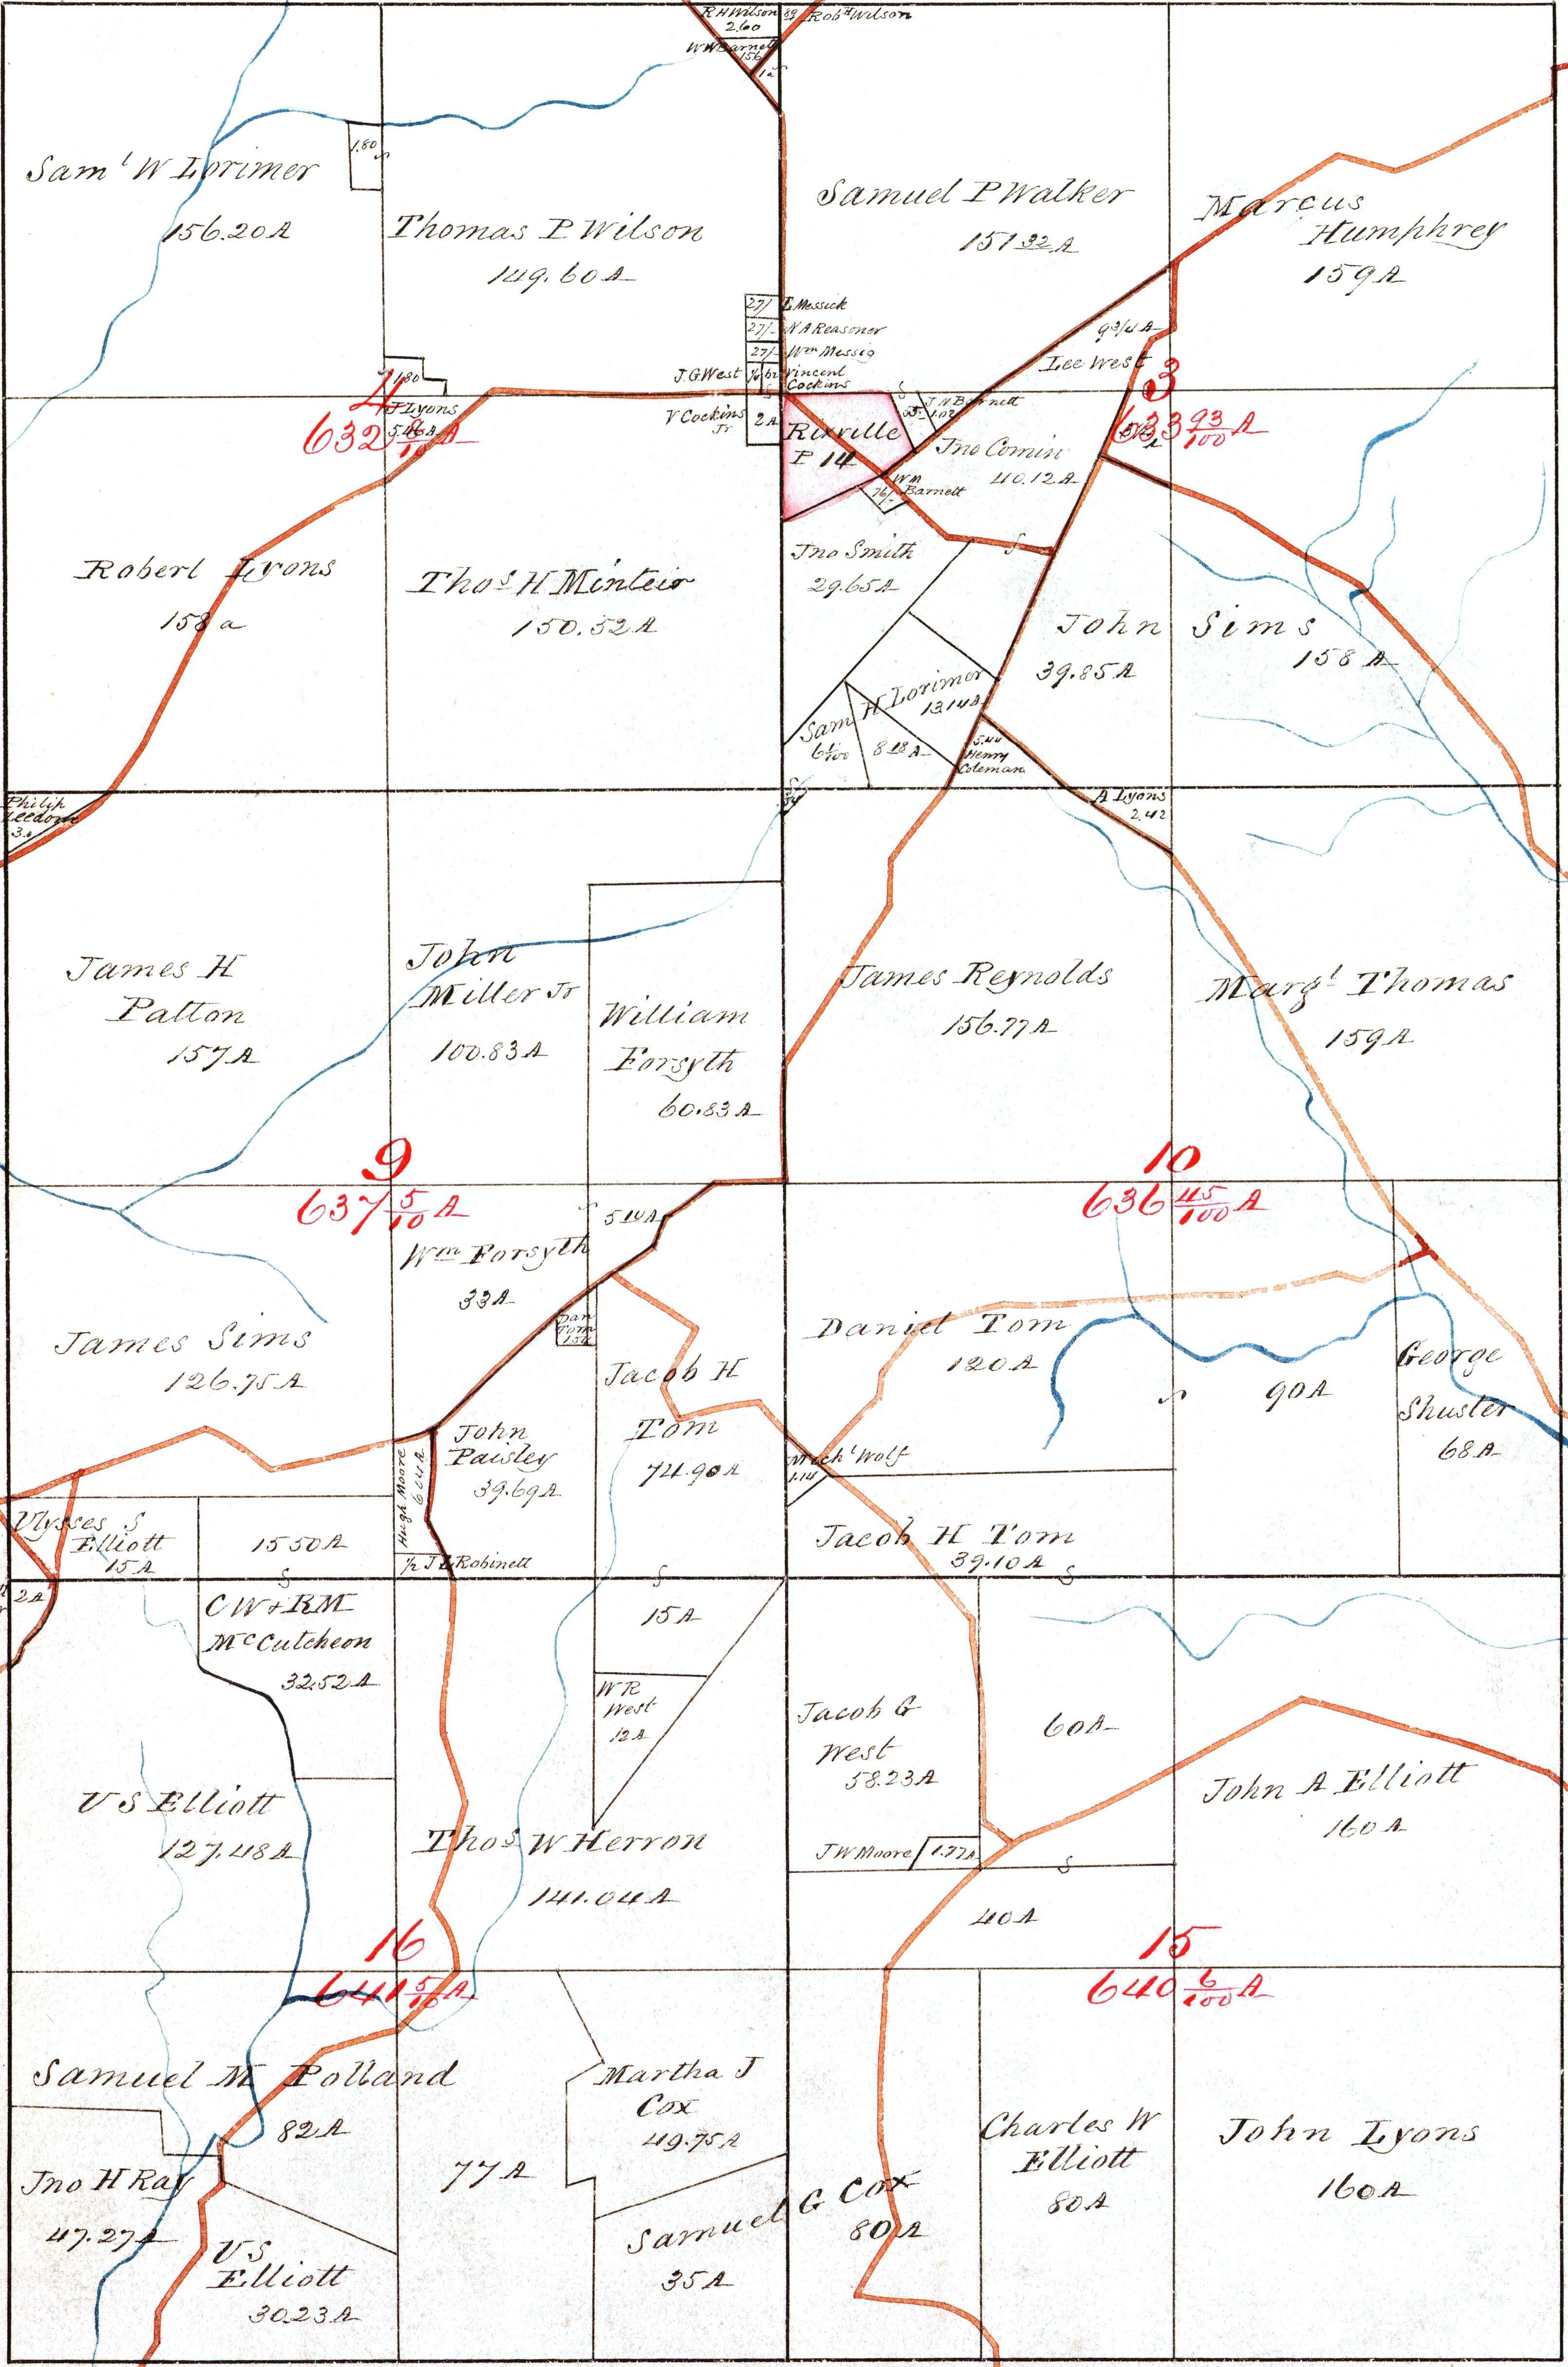 R H Wilson
2.60
89
Rob.t Wilson
W W Barnett
156
1a
Sam.l W Lorimer
156.20 A
1.80
Thomas P Wilson
149.60 A
Samuel P Walker
151 32 A
Marcus
Humphrey
159 A
27/ L Messick
27/ N A Reasoner
27/ Wm Messig
J. G. West
Vincent
Cockins
9 3/4 A
Lee West
1.80
J Lyons
5.46 A
4
632 A
V Cockins
Jr
2 A
Rixville
P 14
55
1.02
J N Barnett
Jno Comin
40.12 A
3
633 93/100 A
76/
Wm
Barnett
Robert Lyons
158 a
Thos H Minteir
150.52 A
Jno Smith
29.65 A
John Sims
39.85 A
158 A
Sam H Lorimer
13.14 A
6 1/100
8.18 A
5.44
Henry
Coleman
Philip
Leedom
3 a
A Lyons
2.42
James H
Patton
157 A
John
Miller Jr
100.83 A
William
Forsyth
60.83 A
James Reynolds
156.77 A
Marg.t Thomas
159 A
9
637 5/10 A
10
636 45/100 A
Wm Forsyth
33 A
5.14 A
Dan
Tom
1.50
James Sims
126.75 A
Jacob H
Tom
74.90 A
Daniel Tom
120 A
90 A
George
Shuster
68 A
John
Paisley
39.69 A
Hugh Moore
6.04 A
Mich.l Wolf
1.14
Ulysses S
Elliott
15 A
15 50 A
1/2 J L Robinett
Jacob H Tom
39.10 A
2 A
C W & R M
McCutcheon
32.52 A
15 A
W R
West
12 A
Jacob G
West
58.23 A
60 A
John A Elliott
160 A
U S Elliott
127.48 A
Thos W Herron
141.04 A
J W Moore
1.77 A
40 A
16
641 5/10 A
15
640 6/100 A
Samuel M Polland
82 A
Martha J
Cox
49.75 A
77 A
Jno H Ray
47.27 A
U S
Elliott
30.23 A
Samuel G Cox
35 A
80 A
Charles W
Elliott
80 A
John Lyons
160 A